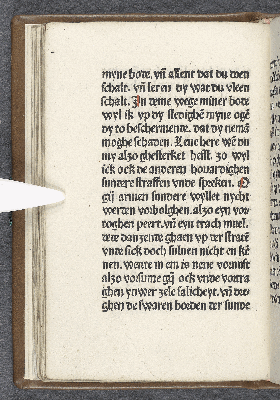 myne bote. vñ allent dat du doen
schalt. vñ leren dy wat du vleen
schalt. In deme wege miner bote
wyl ik vp dy sledighē myne oge
dy to beschermente. dat dy nemā
moghe schaden. Leue here wē du
my alzo ghesterket heist. zo wyl
ick ock de anderen houardighen
sundere straffen vnde spreken. O
gij armen sundere wyllet nycht
werden vorbolghen. alzo eyn vor
toghen peert. vñ eyn trach muel.
dede dar gheen vp der strate
vnde sick doch suluen nicht en kē
nen. wente in em is nene vornuft
alzo vorsume gij ock vnde vortra
ghen yuwer zele salicheyt. vñ dre
ghen de swaren boerden der sunde